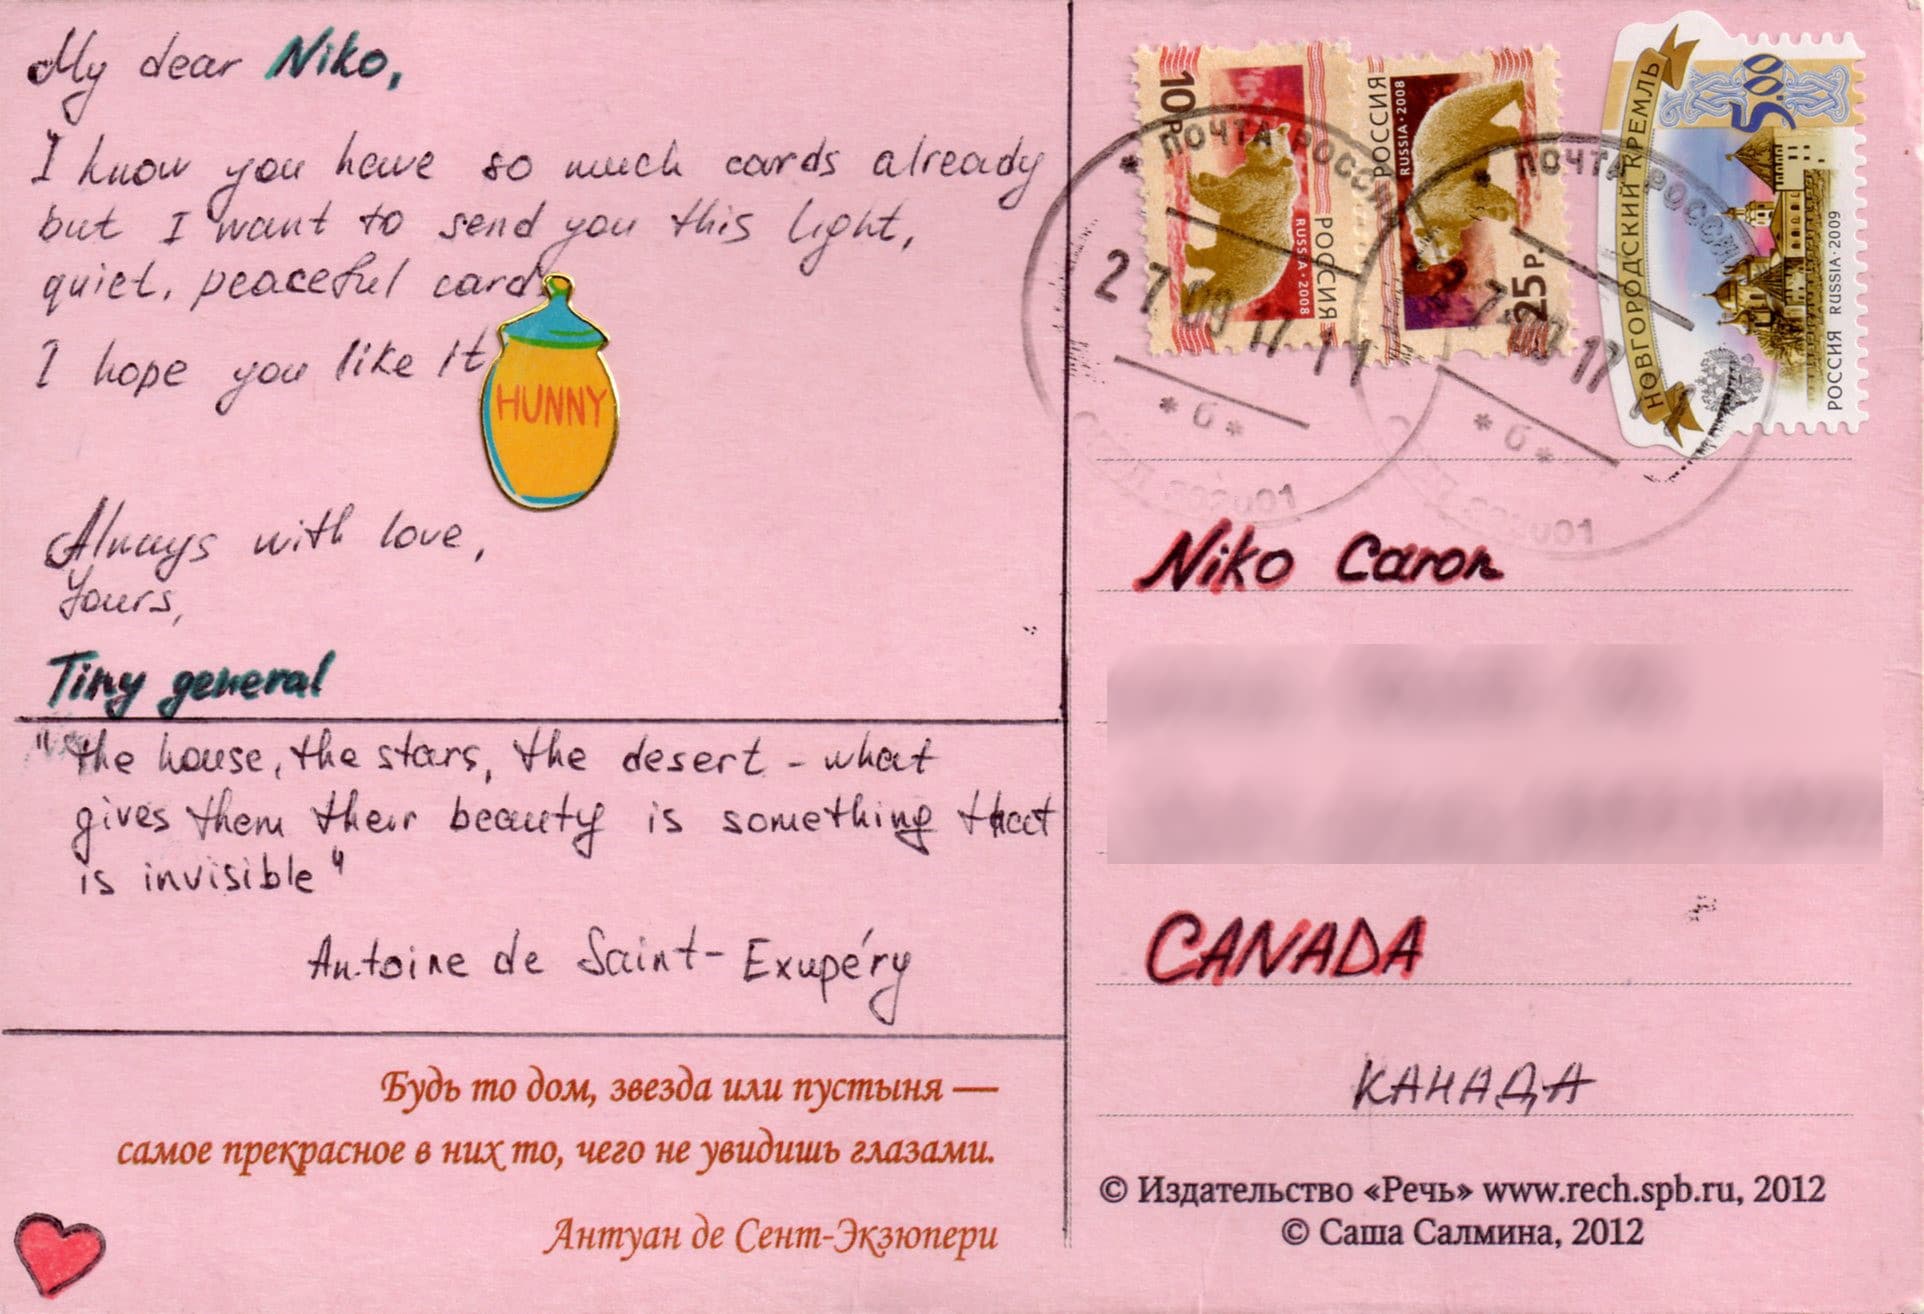 My dear Niko,
I know you have so much cards already
but I want to send you this light,
quiet, peaceful card.
I hope you like it
HUNNY
Always with love,
Yours,
Tiny general
"the house, the stars, the desert - what
gives them their beauty is something that
is invisible"
Antoine de Saint-Exupéry
Будь то дом, звезда или пустыня —
самое прекрасное в них то, чего не увидишь глазами.
Антуан де Сент-Экзюпери
10Р
РОССИЯ
RUSSIA·2008
РОССИЯ
RUSSIA·2008
25Р
5.00
НОВГОРОДСКИЙ КРЕМЛЬ
РОССИЯ RUSSIA·2009
* ПОЧТА РОССИИ
27 09 17 11
* б *
* ПОЧТА РОССИИ
17
* б *
Niko Caron
CANADA
КАНАДА
© Издательство «Речь» www.rech.spb.ru, 2012
© Саша Салмина, 2012